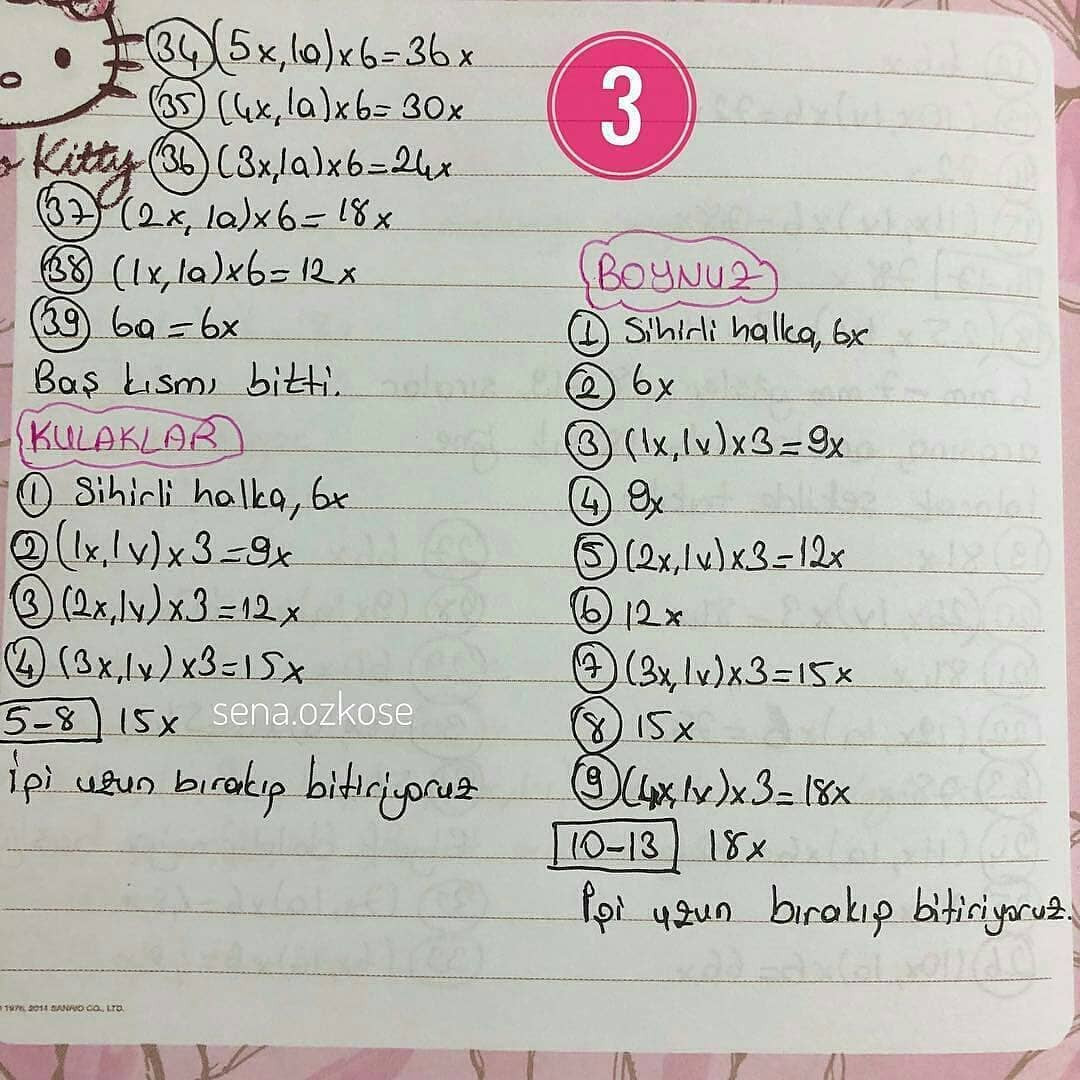 (34) (5x,1a)x6=36x
(35) (4x,1a)x6=30x
Kitty
(36) (3x,1a)x6=24x
(37) (2x,1a)x6=18x
(38) (1x,1a)x6=12x
(39) 6a=6x
Baş kısmı bitti.
KULAKLAR
(1) Sihirli halka, 6x
(2) (1x,1v)x3=9x
(3) (2x,1v)x3=12x
(4) (3x,1v)x3=15x
5-8 15x
sena.ozkose
İpi uzun bırakıp bitiriyoruz
3
BOYNUZ
(1) Sihirli halka, 6x
(2) 6x
(3) (1x,1v)x3=9x
(4) 9x
(5) (2x,1v)x3=12x
(6) 12x
(7) (3x,1v)x3=15x
(8) 15x
(9) (4x,1v)x3=18x
10-13 18x
İpi uzun bırakıp bitiriyoruz.
1976, 2014 SANRIO CO., LTD.